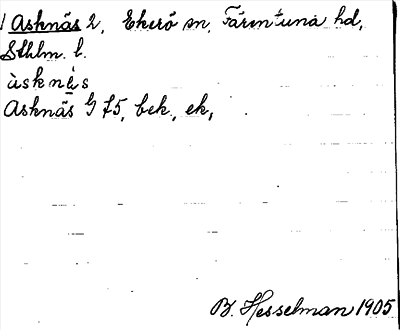 1 Asknäs 2, Ekerö sn, Färentuna hd,
Sthlm. l.
àsknè̱s
Asknäs G f5, bek, ek,
B. Hesselman 1905